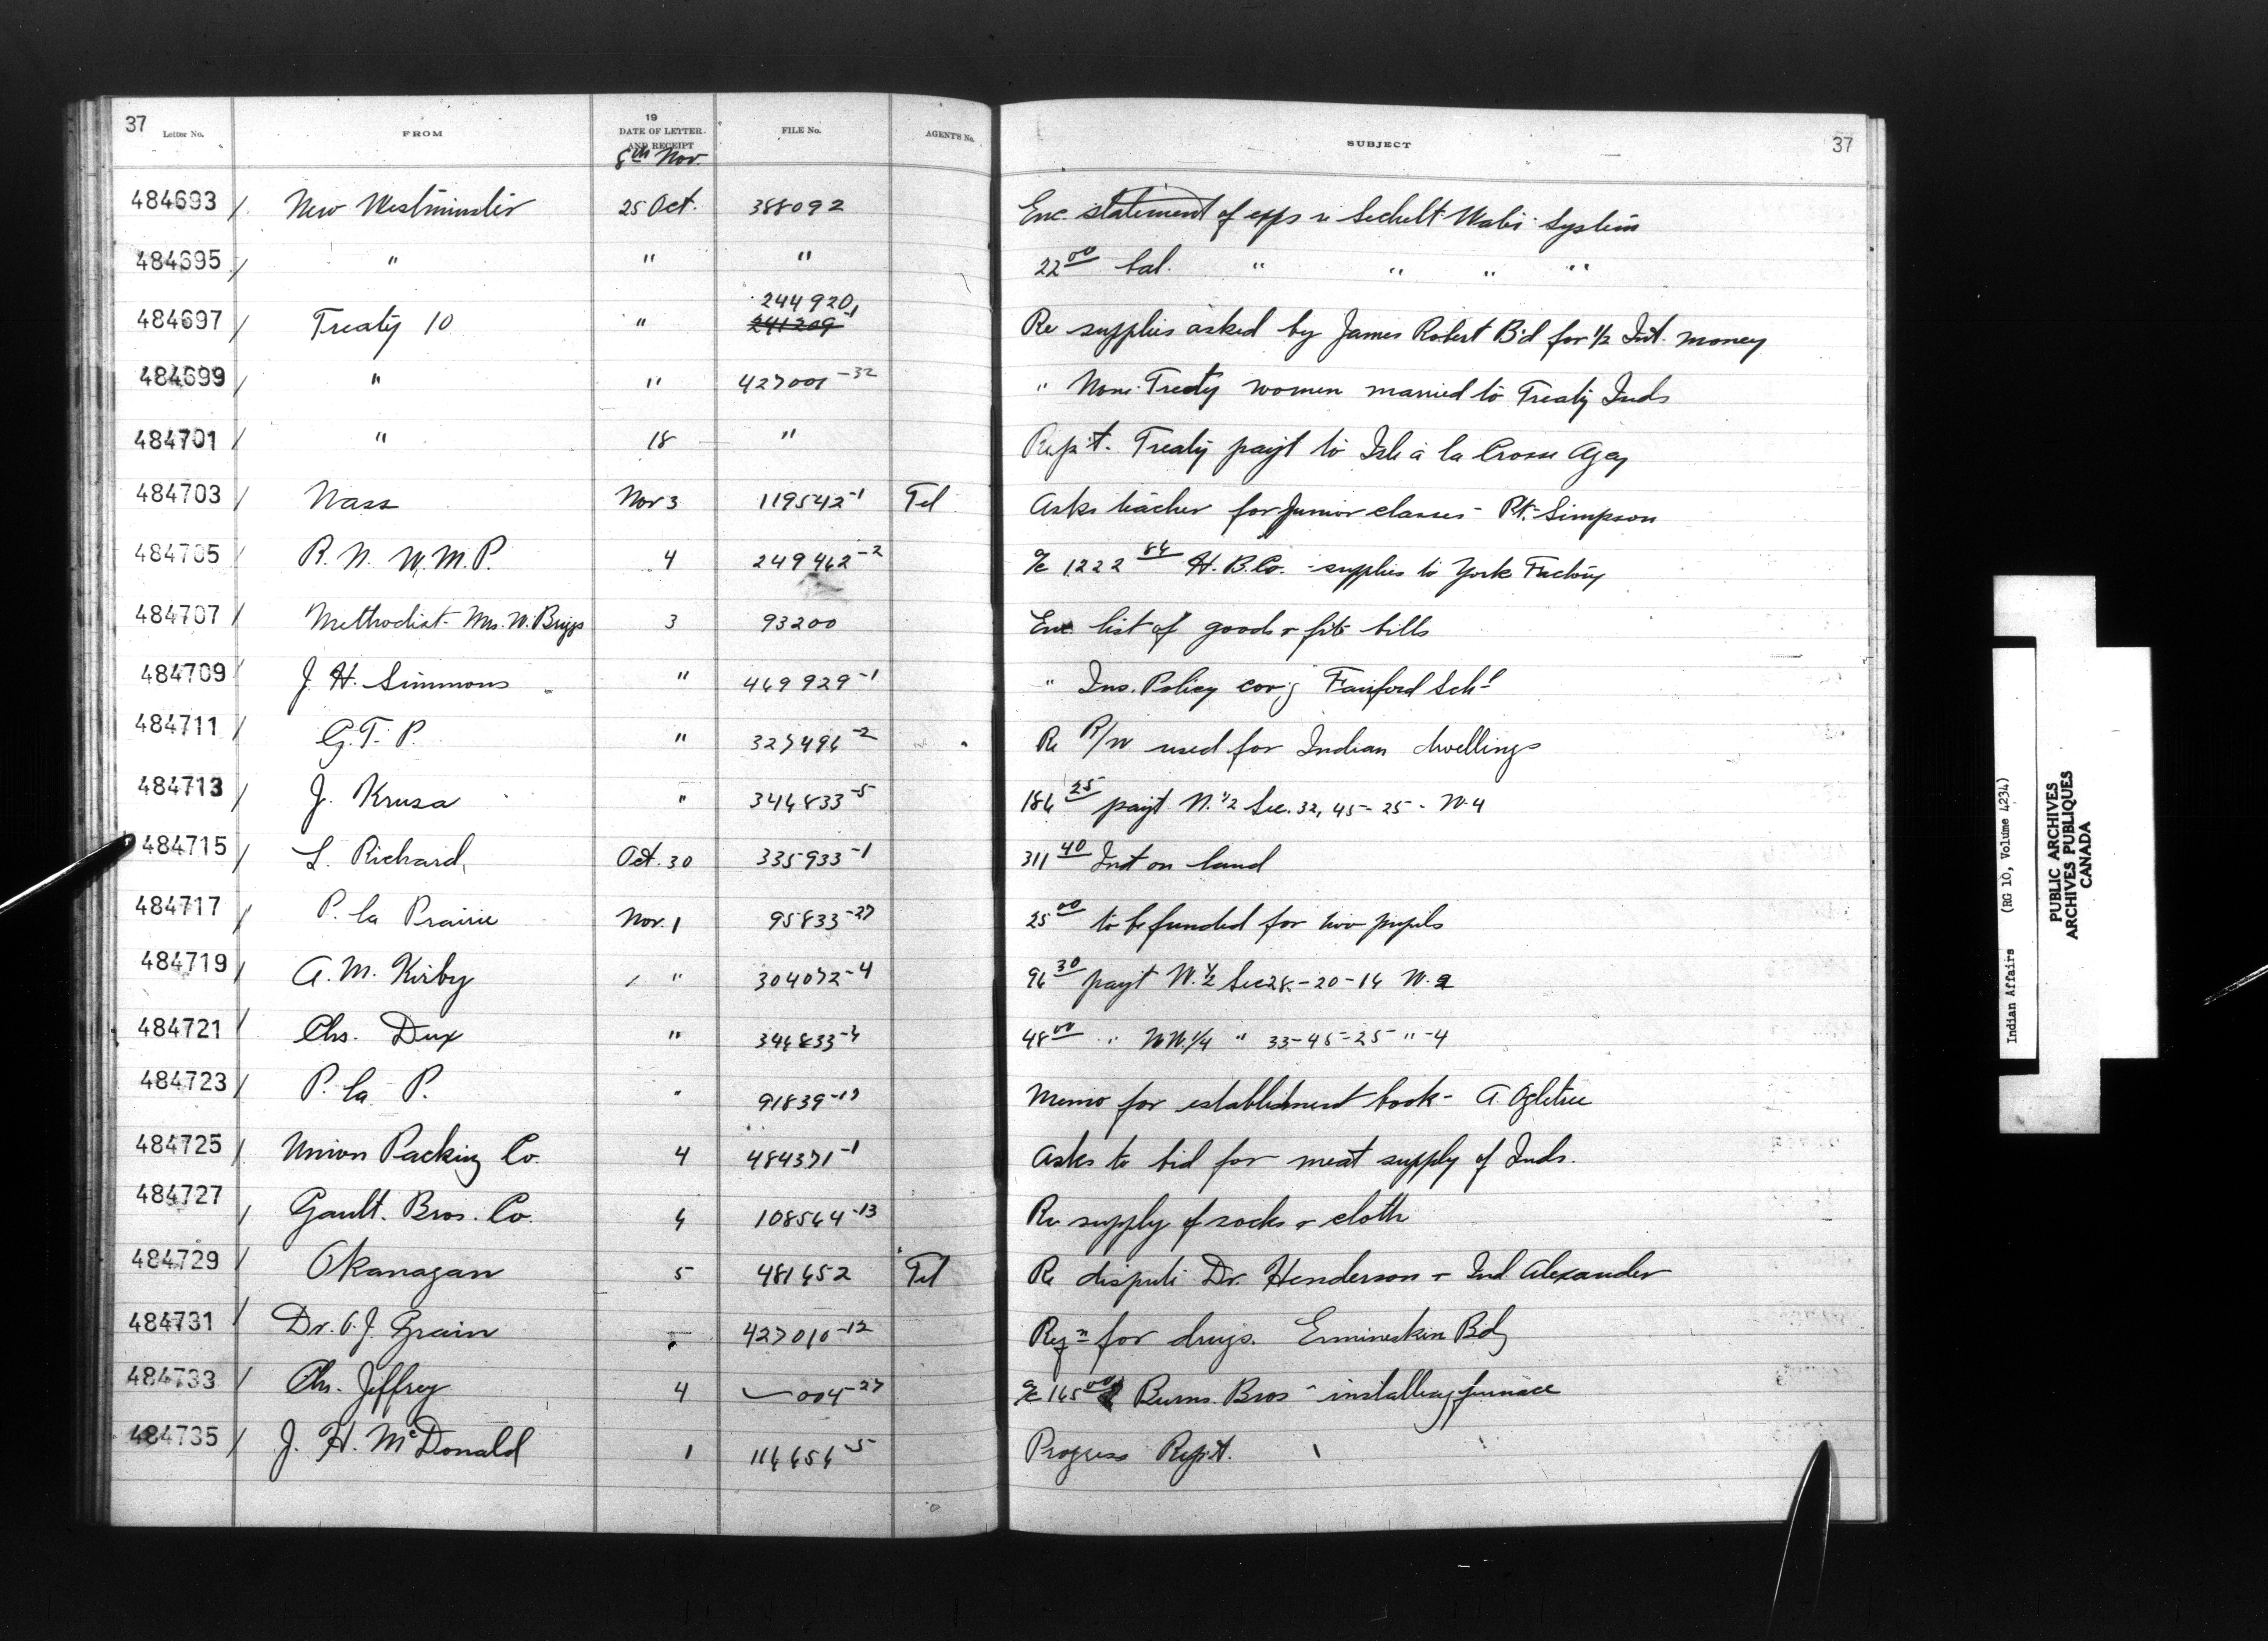 37 37
Letter No. FROM 19 DATE OF LETTER AND RECEIPT FILE No. AGENT'S No. SUBJECT
8th Nov.
484693 / New Westminster 25 Oct. 388092 Enc. statement of exps Sechelt Water System
484695 / " " " 22 00 bal. " " " "
244920-1
484697 / Treaty 10 " 241209-1 Re supplies asked by James Robert B'd for 1/2 Int. money
484699 / " " 427001-32 " Non-Treaty women married to Treaty Inds
484701 / " 18 " Rep't. Treaty payt to Isle à la Crosse Agcy
484703 / Nass Nov 3 119542-1 Tel Asks teacher for junior classes - Pt. Simpson
484705 / R. N. W. M. P. 4 249462-2 a/c 1222 86 H. B. Co. - supplies to York Factory
484707 / Methodist - Mrs. W. Briggs 3 93200 Enc list of goods + frt bills
484709 / J. H. Simmons " 469929-1 " Ins. Policy cov'g Fairford Schl
484711 / G. T. P. " 327496-2 Re R/W used for Indian dwellings
484713 / J. Krusa " 346833-5 186 25 payt. N. 1/2 Sec. 32, 45 - 25 - W. 4
484715 / L. Richard Oct. 30 335933-1 311 40 Int on land
484717 / P. la Prairie Nov. 1 95833-27 25 00 to be funded for two pupils
484719 / A. M. Kirby " 304072-4 96 30 payt W. 1/2 Sec 28 - 20 - 16 W. 2
484721 / Chs. Dux " 346833-6 48 00 " NW. 1/4 " 33 - 45 - 25 " - 4
484723 / P. la P. " 91839-19 Memo for establishment book - A. Ogletree
484725 / Union Packing Co. 4 484371-1 Asks to bid for meat supply of Inds.
484727 / Gault. Bros. Co. 6 108564-13 Re supply of socks + cloth
484729 / Okanagan 5 481652 Tel Re dispute Dr. Henderson + Ind. Alexander
484731 / Dr. O. J. Grain " 427010-12 Reqn for drugs. Ermineskin Bdg
484733 / Chs. Jeffrey 4 004-27 a/c 165 00 Burns. Bros - installing furnace
484735 / J. H. McDonald 1 116656-5 Progress Rep't.
Indian Affairs (RG 10, Volume 4234)
PUBLIC ARCHIVES
ARCHIVES PUBLIQUES
CANADA